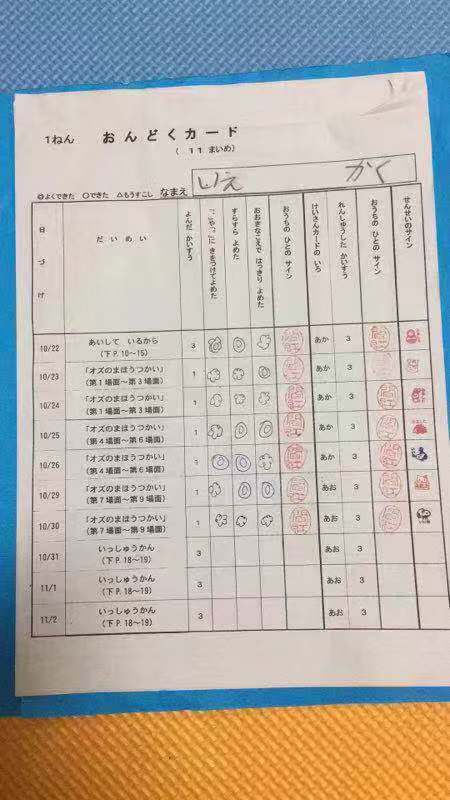 1ねん おんどくカード
( 11 まいめ)
◎よくできた ○できた △もうすこし なまえ いえ かく
日づけ
だいめい
よんだ かいすう
「、」や「。」に きをつけてよめた
すらすら よめた
おおきなこえで はっきり よめた
おうちの ひとの サイン
けいさんカードの いろ
れんしゅうした かいすう
おうちの ひとの サイン
せんせいのサイン
10/22 あいして いるから 3 あか 3
(下P.10~15)
10/23 「オズのまほうつかい」 1 あか 3
(第1場面~第3場面)
10/24 「オズのまほうつかい」 1 あか 3
(第1場面~第3場面)
10/25 「オズのまほうつかい」 1 あか 3
(第4場面~第6場面)
10/26 「オズのまほうつかい」 1 あか 3
(第4場面~第6場面)
10/29 「オズのまほうつかい」 1 あお 3
(第7場面~第9場面)
10/30 「オズのまほうつかい」 1 あお 3
(第7場面~第9場面)
10/31 いっしゅうかん 3 あお 3
(下P.18~19)
11/1 いっしゅうかん 3 あお 3
(下P.18~19)
11/2 いっしゅうかん 3 あお 3
(下P.18~19)